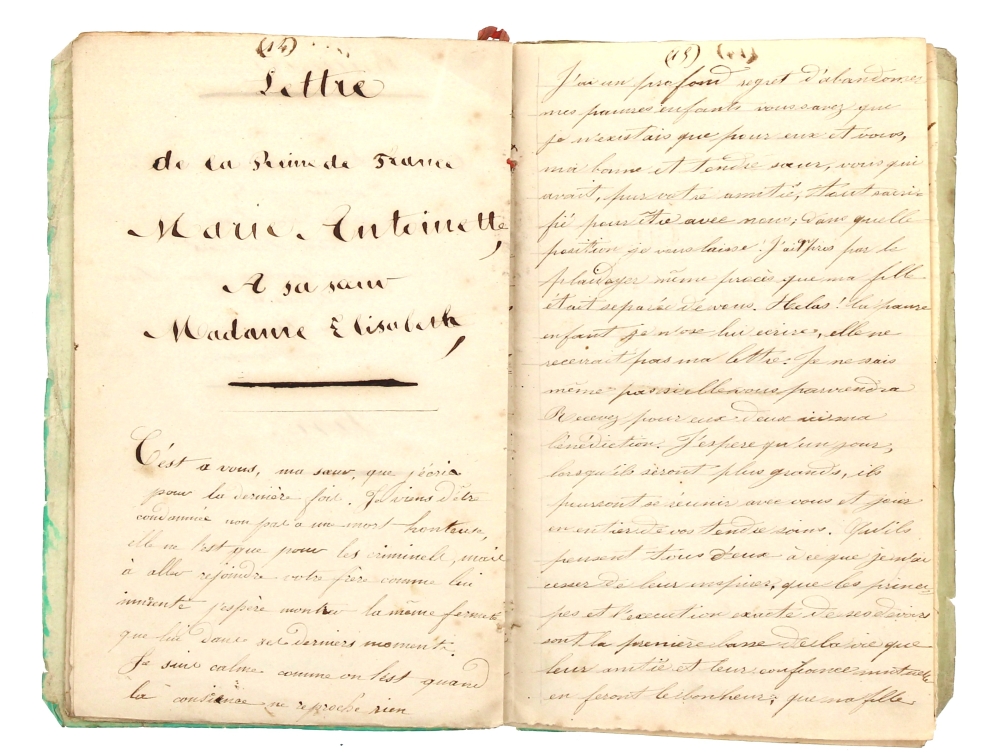 (14)
Lettre
de la Reine de France
Marie Antoinette,
A sa sœur
Madame Elisabeth,
C'est a vous, ma sœur, que j'écris
pour la dernière fois. Je viens d'être
condamnée non pas à une mort honteuse,
elle ne l'est que pour les criminels, mais
à aller rejoindre votre frère comme lui
innocente j'espère montrer la même fermeté
que lui dans ses derniers moments.
Je suis calme comme on l'est quand
la consience ne reproche rien
(15)
J'ai un profond regret d'abandonner
mes pauvres enfants vous savez que
je n'existais que pour eux et vous,
ma bonne et tendre sœur, vous qui
avait, par votre amitié, tout sacri-
fié pour être avec nous; dans quelle
position je vous laisse! J'ai appris par le
plaidoyer même procès que ma fille
était separée de vous. Helas! la pauvre
enfant je n'ose lui ecrire, elle ne
recevrait pas ma lettre: Je ne sais
même pas si elle vous parviendra
Recevez pour eux deux ici ma
bénédiction: J'espere qu'un jour,
lorsqu'ils seront plus grands, ils
pourront se réunir avec vous et jouir
en entier de vos tendre soins. Qu'ils
pensent tous deux à ce que je n'ai
cesser de leur inspirer, que les princi-
pes et l'execution exacte de ses devoirs
sont la première base de la vie que
leur amitié et leur confiance mutuelle
en feront le bonheur; que ma fille